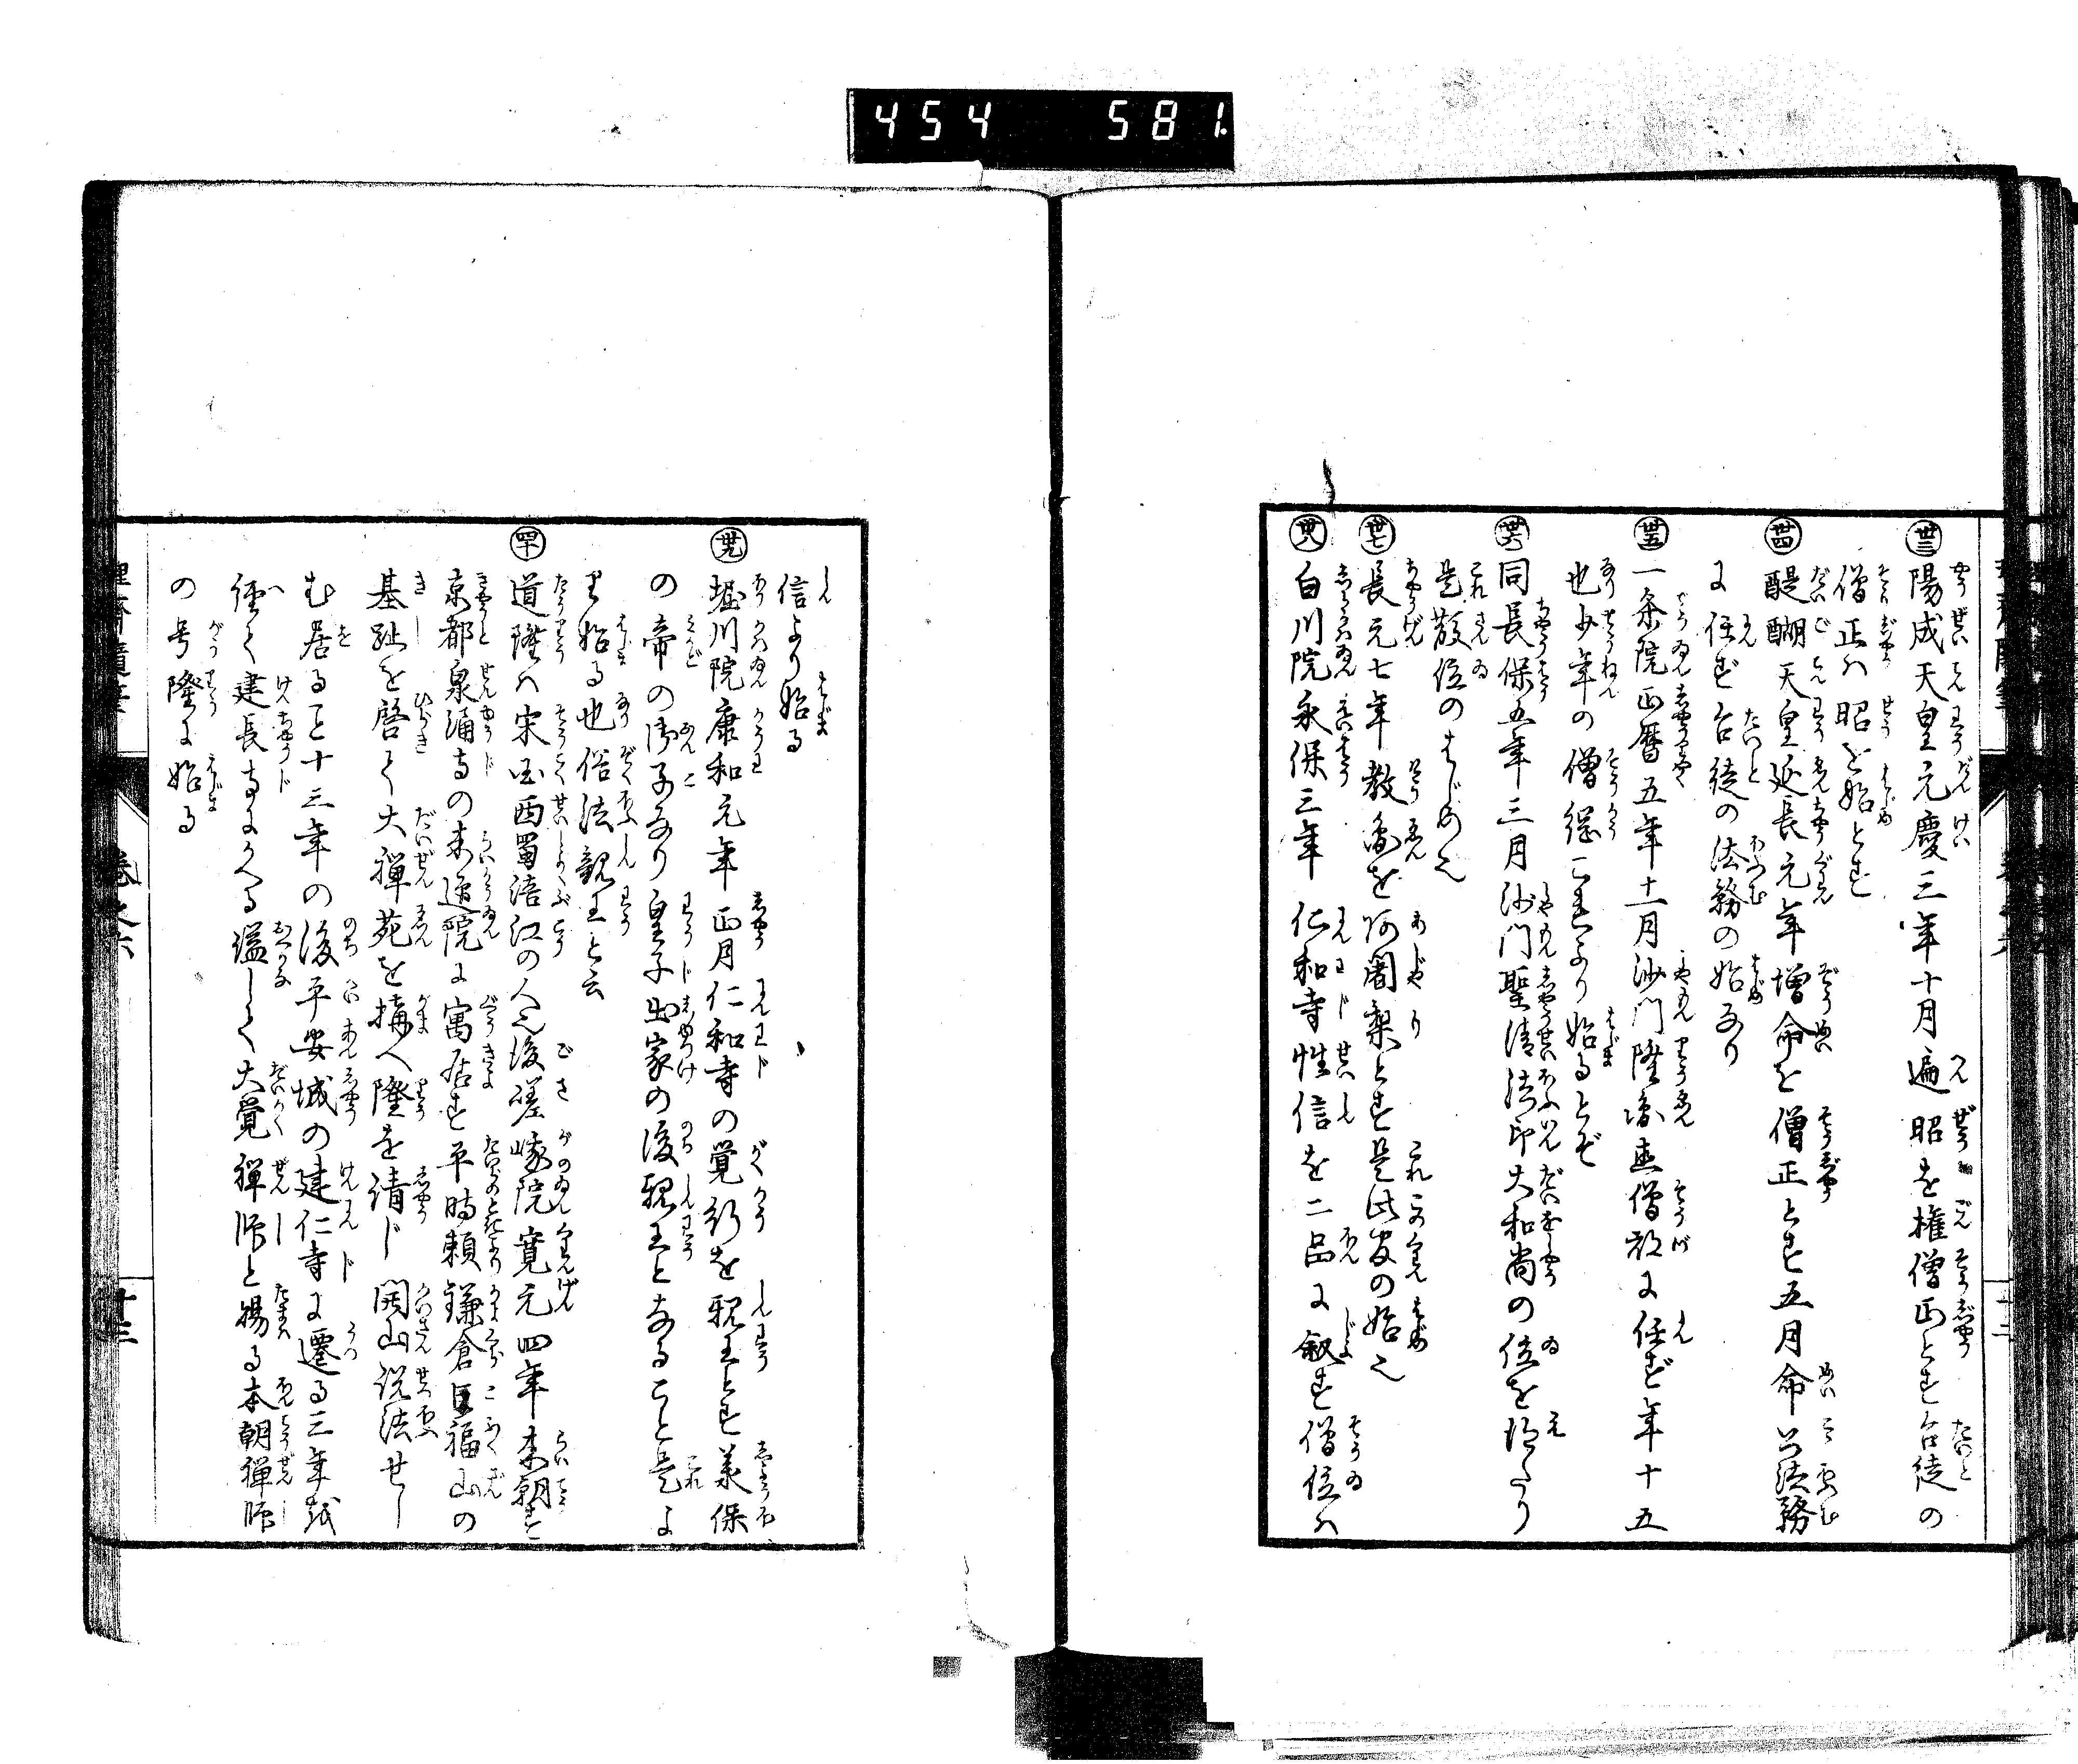 454 581
卅三 陽成天皇元慶三年十月遍昭を権僧正とす台徒の
僧正ハ昭を始とす
卅四 醍醐天皇延長元年増命を僧正とす五月命公法務
に任ず台徒の法務の始なり
卅五 一条院正暦五年十一月沙門隆円直僧都に任ず年十五
也少年の僧綱これより始るとぞ
卅六 同長保五年三月沙門聖清法印大和尚の位を得たり
是散位のはじめ也
卅七 長元七年教円を阿闍梨とす是此官の始也
卅八 白川院永保三年仁和寺性信を二品に叙す僧位ハ
信より始る
卅九 堀川院康和元年正月仁和寺の覚行を親王とす義保
の帝の御子なり皇子出家の後親王となること是よ
り始る也俗法親王と云
四十 道隆ハ宋国西蜀涪江の人也後嵯峨院寛元四年来朝す
京都泉涌寺の来迎院に寓居す平時頼鎌倉巨福山の
基趾を啓て大禅苑を搆へ隆を請じ開山説法せし
む居ること十三年の後平安城の建仁寺に遷る三年を
経て建長寺にかへる謚して大覚禅師と賜る本朝禅師
の号隆に始る
卷之六
廿三